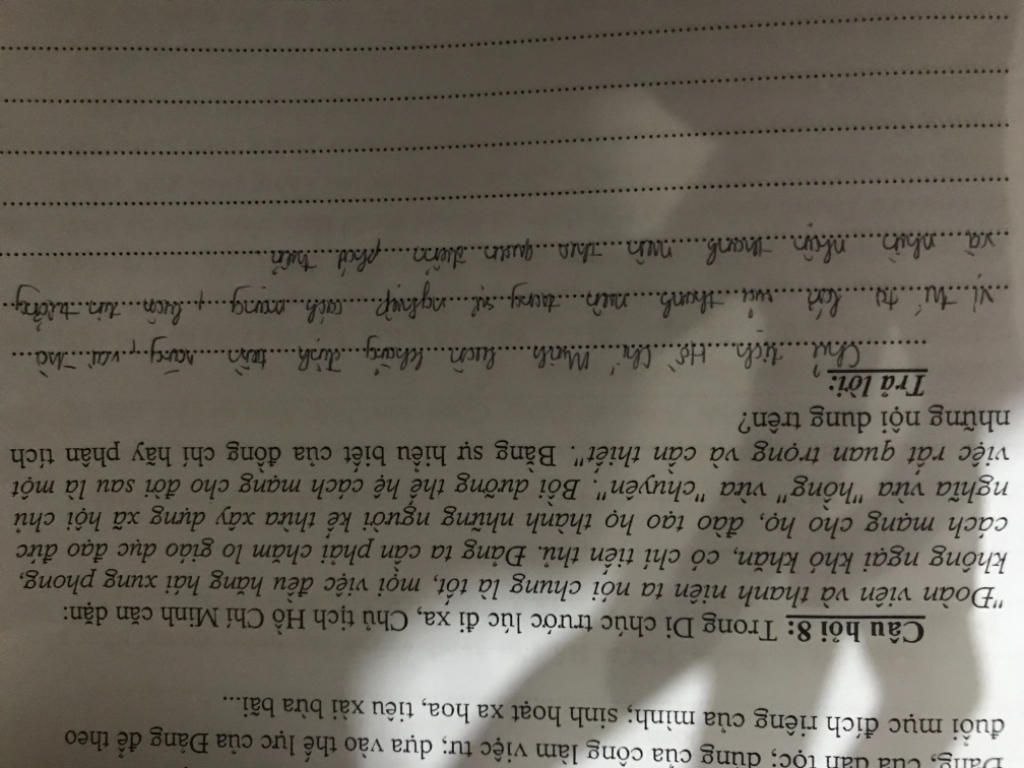 Đảng, của dân tộc; dùng của công làm việc tư; dựa vào thế lực của Đảng để theo
đuổi mục đích riêng của mình; sinh hoạt xa hoa, tiêu xài bừa bãi...
Câu hỏi 8: Trong Di chúc trước lúc đi xa, Chủ tịch Hồ Chí Minh căn dặn:
"Đoàn viên và thanh niên ta nói chung là tốt, mọi việc đều hăng hái xung phong,
không ngại khó khăn, có chí tiến thủ. Đảng ta cần phải chăm lo giáo dục đạo đức
cách mạng cho họ, đào tạo họ thành những người kế thừa xây dựng xã hội chủ
nghĩa vừa "hồng" vừa "chuyên". Bồi dưỡng thế hệ cách mạng cho đời sau là một
việc rất quan trọng và cần thiết". Bằng sự hiểu biết của đồng chí hãy phân tích
những nội dung trên?
Trả lời:
Chủ tịch Hồ Chí Minh luôn khẳng định tiềm năng, vai trò
vị trí to lớn của thanh niên trong sự nghiệp cách mạng, luôn tin tưởng
và nhìn nhận thanh niên theo quan điểm phát triển